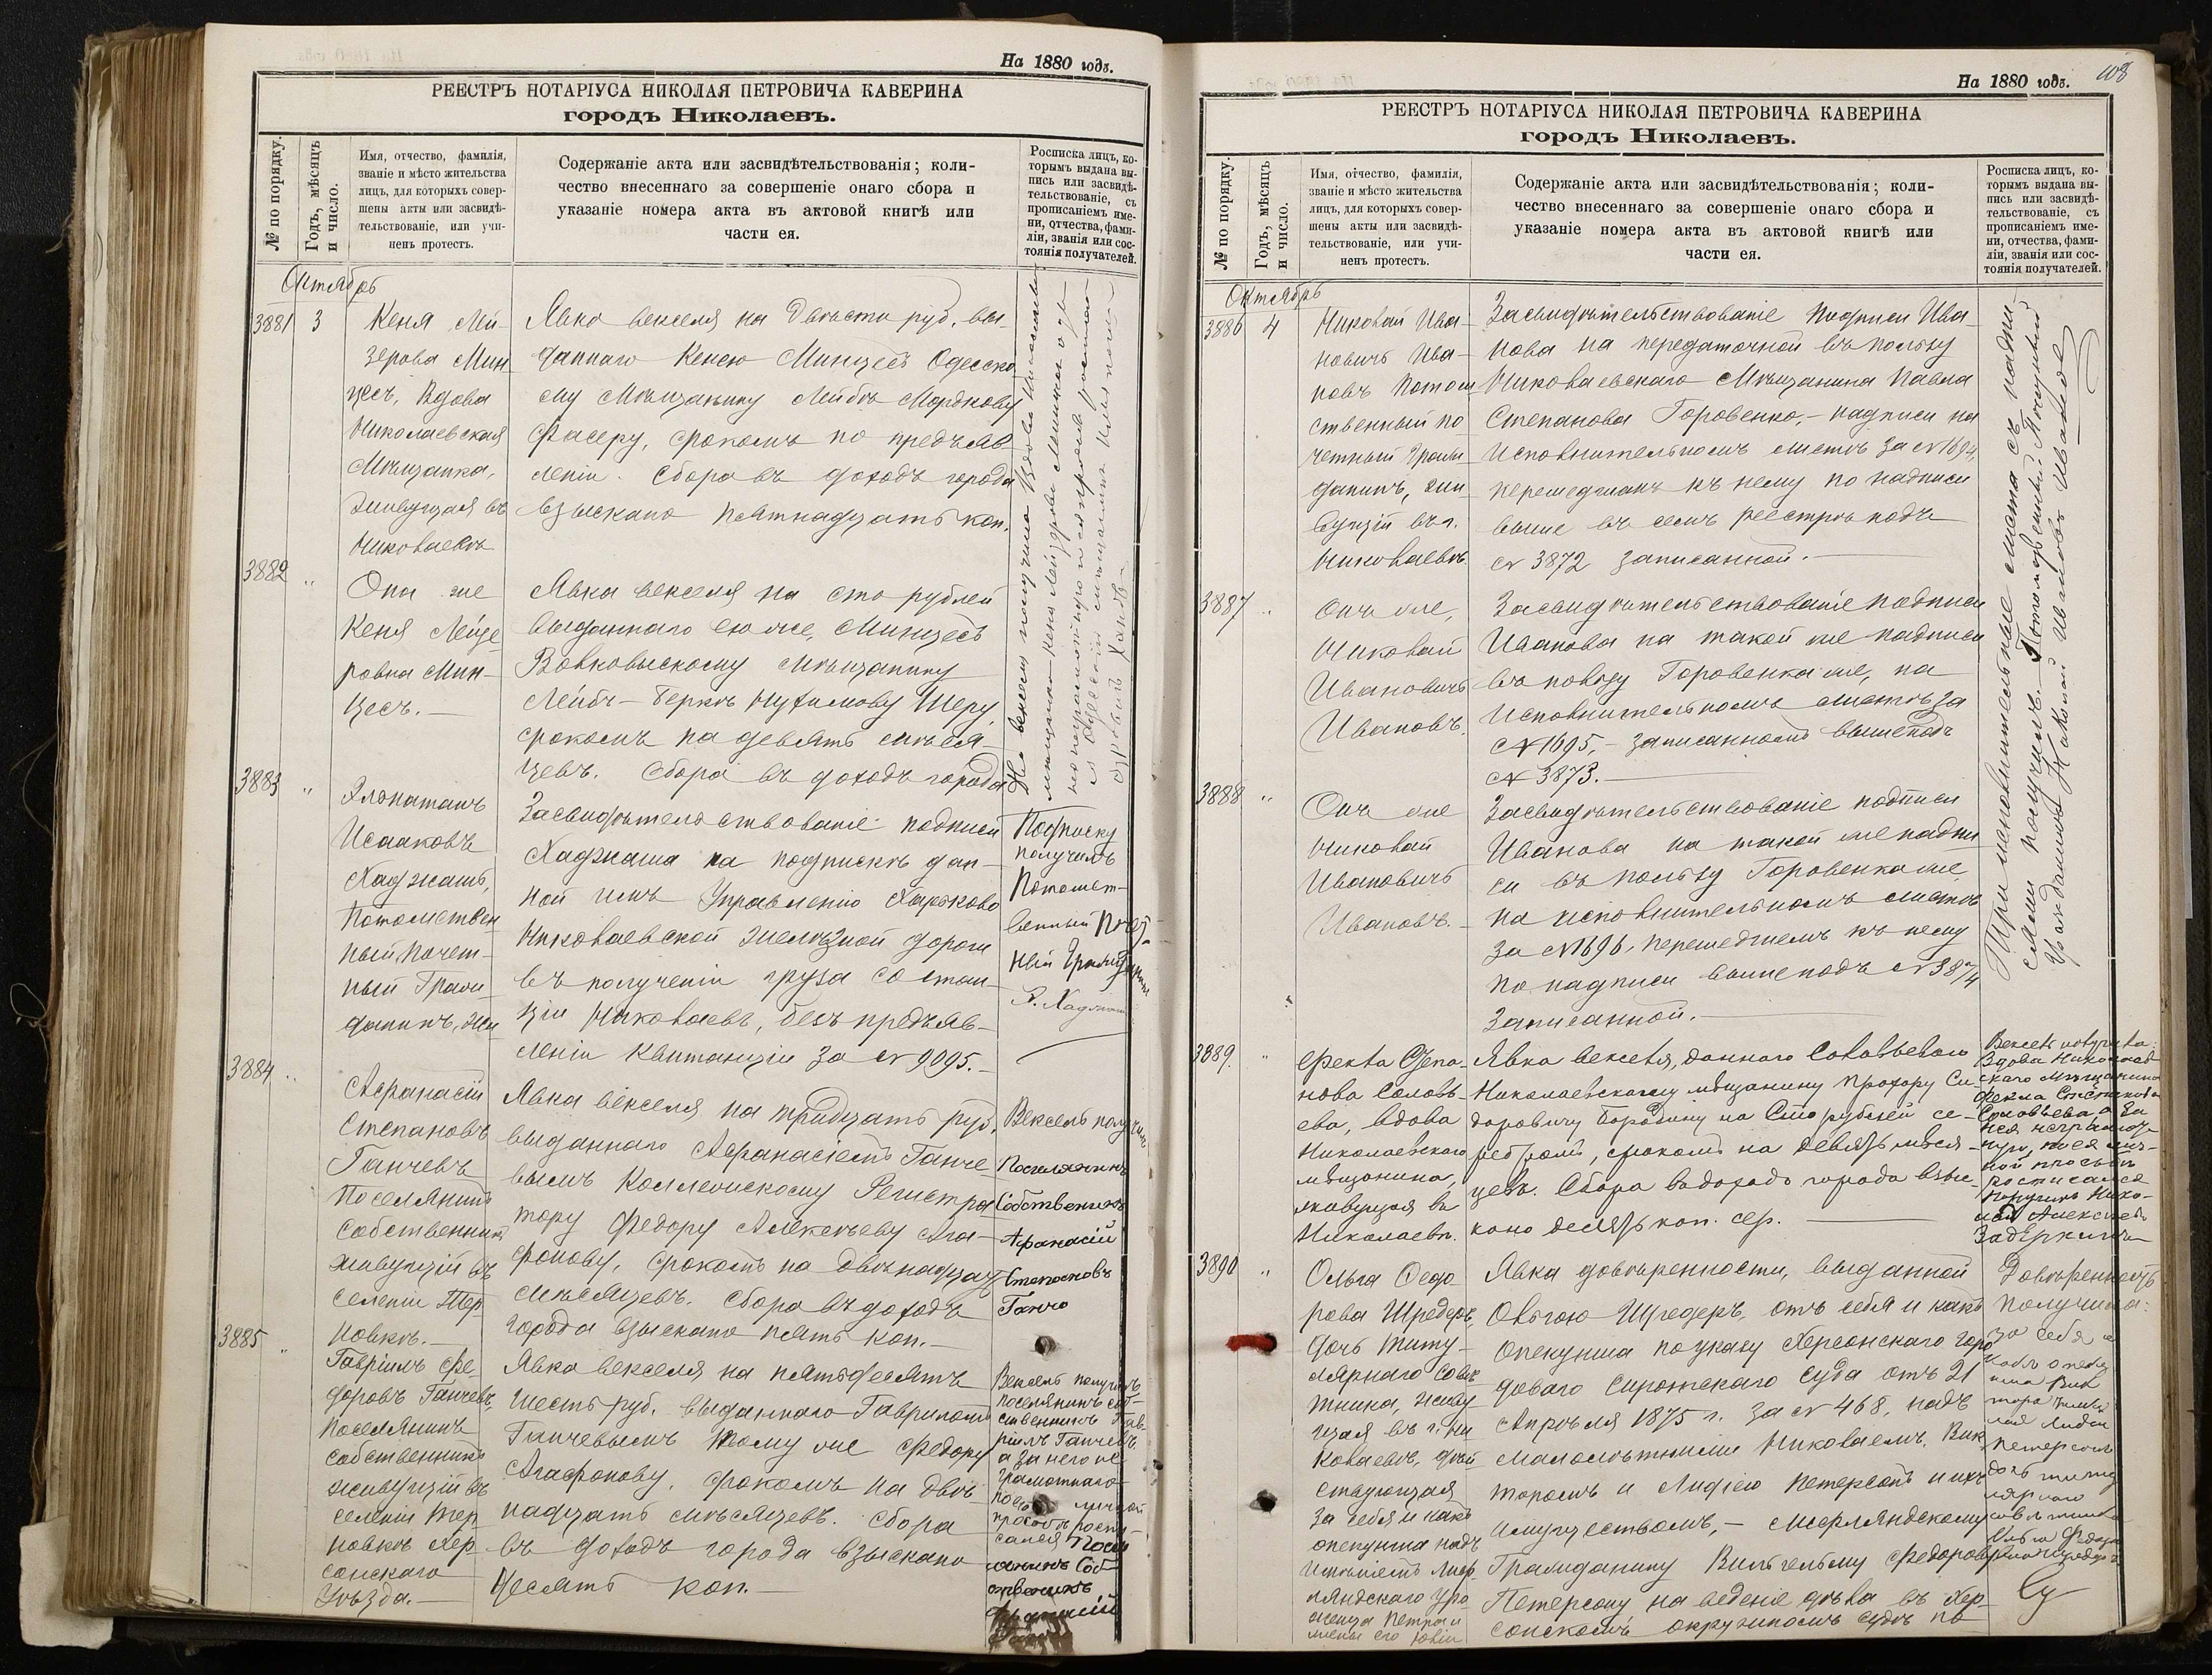 На 1880 годъ.
РЕЕСТРЪ НОТАРІУСА НИКОЛАЯ ПЕТРОВИЧА КАВЕРИНА
городъ Николаевъ.
№ по порядку.
Годъ, мѣсяцъ
и число.
Имя, отчество, фамилія,
званіе и мѣсто жительства
лицъ, для которыхъ совер-
шены акты или засвидѣ-
тельствованіе, или учи-
ненъ протестъ.
Содержаніе акта или засвидѣтельствованія; коли-
чество внесеннаго за совершеніе онаго сбора и
указаніе номера акта въ актовой книгѣ или
части ея.
Росписка лицъ, ко-
торымъ выдана вы-
пись или засвидѣ-
тельствованіе, съ
прописаніемъ име-
ни, отчества, фами-
ліи, званія или сос-
тоянія получателей.
Октябрь
3881
3
Кеня Лей-
зерова Мин
цесъ, Вдова
Николаевская
Мѣщанка,
живущая въ
Николаевѣ
Явка векселя на двѣсти руб. вы-
даннаго Кенею Минцесъ Одесско-
му Мѣщанину Лейбѣ Мордкову
Фасеру, срокомъ по предъяв-
леніи. Сбора въ доходъ города
взыскано пятнадцать коп.
3882
"
Она же
Кеня Лейзе
ровна Мин-
цесъ. —
Явка векселя на сто рублей
выданнаго ею же, Минцесъ
Волковыскому мѣщанину
Лейбѣ-Беркѣ Нухимову Шеру,
срокомъ на девять мѣся-
цевъ. Сбора въ доходъ города
3883
"
Элонатанъ
Исааковъ
Хаджашъ,
Потомствен
ный Почет-
ный Граж-
данинъ, жи
Засвидѣтельствованіе подписи
Хаджаша на подпискѣ дан-
ной имъ Управленію Харьково
Николаевской желѣзной дороги
въ полученіи груза со стан-
ціи Николаевъ, безъ предъяв-
леніи квитанціи за № 9095.
Подписку
получилъ
Потомст-
венный Почет-
ный Гражданинъ
3884
"
Афанасій
Степановъ
Ганчевъ
Поселянинъ
Собственникъ
живущій въ
селеніи Тер-
новкѣ. —
Явка векселя на тридцать руб,
выданнаго Афанасіемъ Ганче-
вымъ Коллежскому Регистра
тору Федору Алексѣеву Ага-
фонову, срокомъ на двѣнадцать
мѣсяцевъ. Сбора въ доходъ
города взыскано пять коп. —
Вексель получилъ
Поселянинъ
Собственникъ
Афанасій
Степановъ
Ганчо
3885
"
Гавріилъ Фе-
доровъ Ганчевъ,
поселянинъ
собственникъ
живущій въ
селеніи Тер
новкѣ Хер
сонскаго
Уѣзда. —
Явка векселя на пятьдесятъ
шесть руб. выданнаго Гавріиломъ
Ганчевымъ тому же Федору
Агафонову, срокомъ на двѣ-
надцать мѣсяцевъ. Сбора
въ доходъ города взыскано
десять коп. —
Вексель получилъ
поселянинъ соб-
ственникъ Гав-
ріилъ Ганчевъ
а за него не
грамотнаго
На 1880 годъ.
108
РЕЕСТРЪ НОТАРІУСА НИКОЛАЯ ПЕТРОВИЧА КАВЕРИНА
городъ Николаевъ.
№ по порядку.
Годъ, мѣсяцъ
и число.
Имя, отчество, фамилія,
званіе и мѣсто жительства
лицъ, для которыхъ совер-
шены акты или засвидѣ-
тельствованіе, или учи-
ненъ протестъ.
Содержаніе акта или засвидѣтельствованія; коли-
чество внесеннаго за совершеніе онаго сбора и
указаніе номера акта въ актовой книгѣ или
части ея.
Росписка лицъ, ко-
торымъ выдана вы-
пись или засвидѣ-
тельствованіе, съ
прописаніемъ име-
ни, отчества, фами-
ліи, званія или сос-
тоянія получателей.
Октябрь
3886
4
Николай Ива-
новичъ Ива-
новъ Потом
ственный по
четный Граж-
данинъ, жи
вущій въ г.
Николаевѣ
Засвидѣтельствованіе подписи Ива-
нова на передаточной въ пользу
Николаевскаго Мѣщанина Павла
Степанова Горовенко, — надписи на
Исполнительномъ листѣ за № 1694,
перешедшемъ къ нему по надписи
выше въ семъ реестрѣ подъ
№ 3872 записанной. —
Три исполнительные листа съ надпи-
сями получилъ. — Потомственный Почетный
Гражданинъ Николай Ивановъ Ивановъ
3887
"
Онъ же,
Николай
Ивановичъ
Ивановъ.
Засвидѣтельствованіе подписи
Иванова на такой же надписи
въ пользу Горовенка же, на
Исполнительномъ листѣ за
№ 1695, — записанной выше подъ
№ 3873. —
3888
"
Онъ же
Николай
Ивановичъ
Ивановъ. —
Засвидѣтельствованіе подписи
Иванова на такой же надпи
си въ пользу Горовенка же
на исполнительномъ листѣ
за № 1696, перешедшемъ къ нему
по надписи выше подъ № 3874
записанной. —
3889.
"
Фекла Степа-
нова Соловь-
ева, вдова
Николаевскаго
мѣщанина,
живущая въ
Николаевѣ.
Явка векселя, даннаго Соловьевою
Николаевскому мѣщанину Прохору Си-
доровичу Бородину на Сто рублей се-
ребромъ, срокомъ на девять мѣся-
цевъ. Сбора въ доходъ города взыс-
кано десять коп. сер. —
Вексель получила:
Вдова Николаев-
скаго Мѣщанина
Соловьева, а за
нея неграмот-
ную, по ея лич-
ной просьбѣ
росписался
3890
"
Ольга Федо
рова Шредеръ,
дочь Титу-
лярнаго Совѣ
тника, живу
щая въ г. Ни
колаевѣ, дѣй
ствующая
за себя и какъ
опекунша надъ
Явка довѣренности, выданной
Ольгою Шредеръ, отъ себя и какъ
опекунша по указу Херсонскаго Горо
доваго Сиротскаго Суда отъ 21
Апрѣля 1875 г. за № 468, надъ
малолѣтними Николаемъ, Вик
торомъ и Лидіею Петерсонъ и ихъ
имуществомъ, — Лифляндскому
Гражданину Вильгельму Федорову
Петерсону на веденіе дѣла въ Хер-
сонскомъ окружномъ судѣ по
Довѣренность
получила:
за себя и